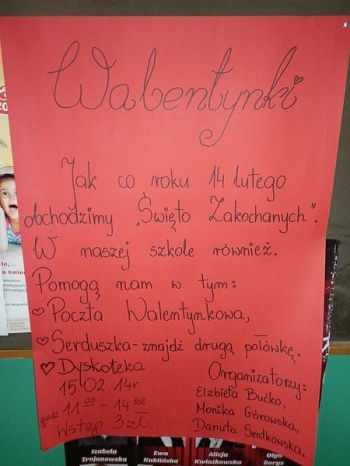 Walentynki
Jak co roku 14 lutego
obchodzimy „Święto Zakochanych”.
W naszej szkole również.
Pomogą nam w tym:
Poczta Walentynkowa,
Serduszka-znajdź drugą połówkę.
Dyskoteka
15.02 14r
godz 11 00 - 14 00
Wstęp 3zł.
Organizatorzy:
Elżbieta Bućko,
Monika Górowska,
Danuta Sentkowska.
Izabela
Trojanowska
Ewa
Kuklińska
Alicja
Kwiatkowska
Olga